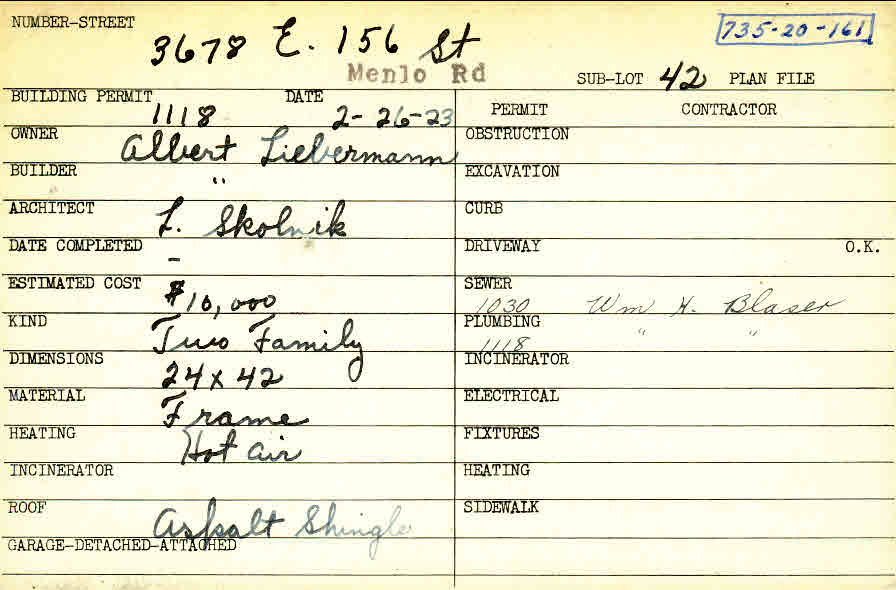 NUMBER-STREET
3678 E. 156 St
735-20-161
Menlo Rd
SUB-LOT 42 PLAN FILE
BUILDING PERMIT DATE
1118 2-26-23
PERMIT CONTRACTOR
OWNER Albert Liebermann
OBSTRUCTION
BUILDER "
EXCAVATION
ARCHITECT L. Skolnik
CURB
DATE COMPLETED -
DRIVEWAY O.K.
ESTIMATED COST $10,000
SEWER
1030 Wm H. Blaser
KIND Two Family
PLUMBING " "
1118
DIMENSIONS 24 x 42
INCINERATOR
MATERIAL Frame
ELECTRICAL
HEATING Hot air
FIXTURES
INCINERATOR
HEATING
ROOF Asphalt Shingle
SIDEWALK
GARAGE-DETACHED-ATTACHED